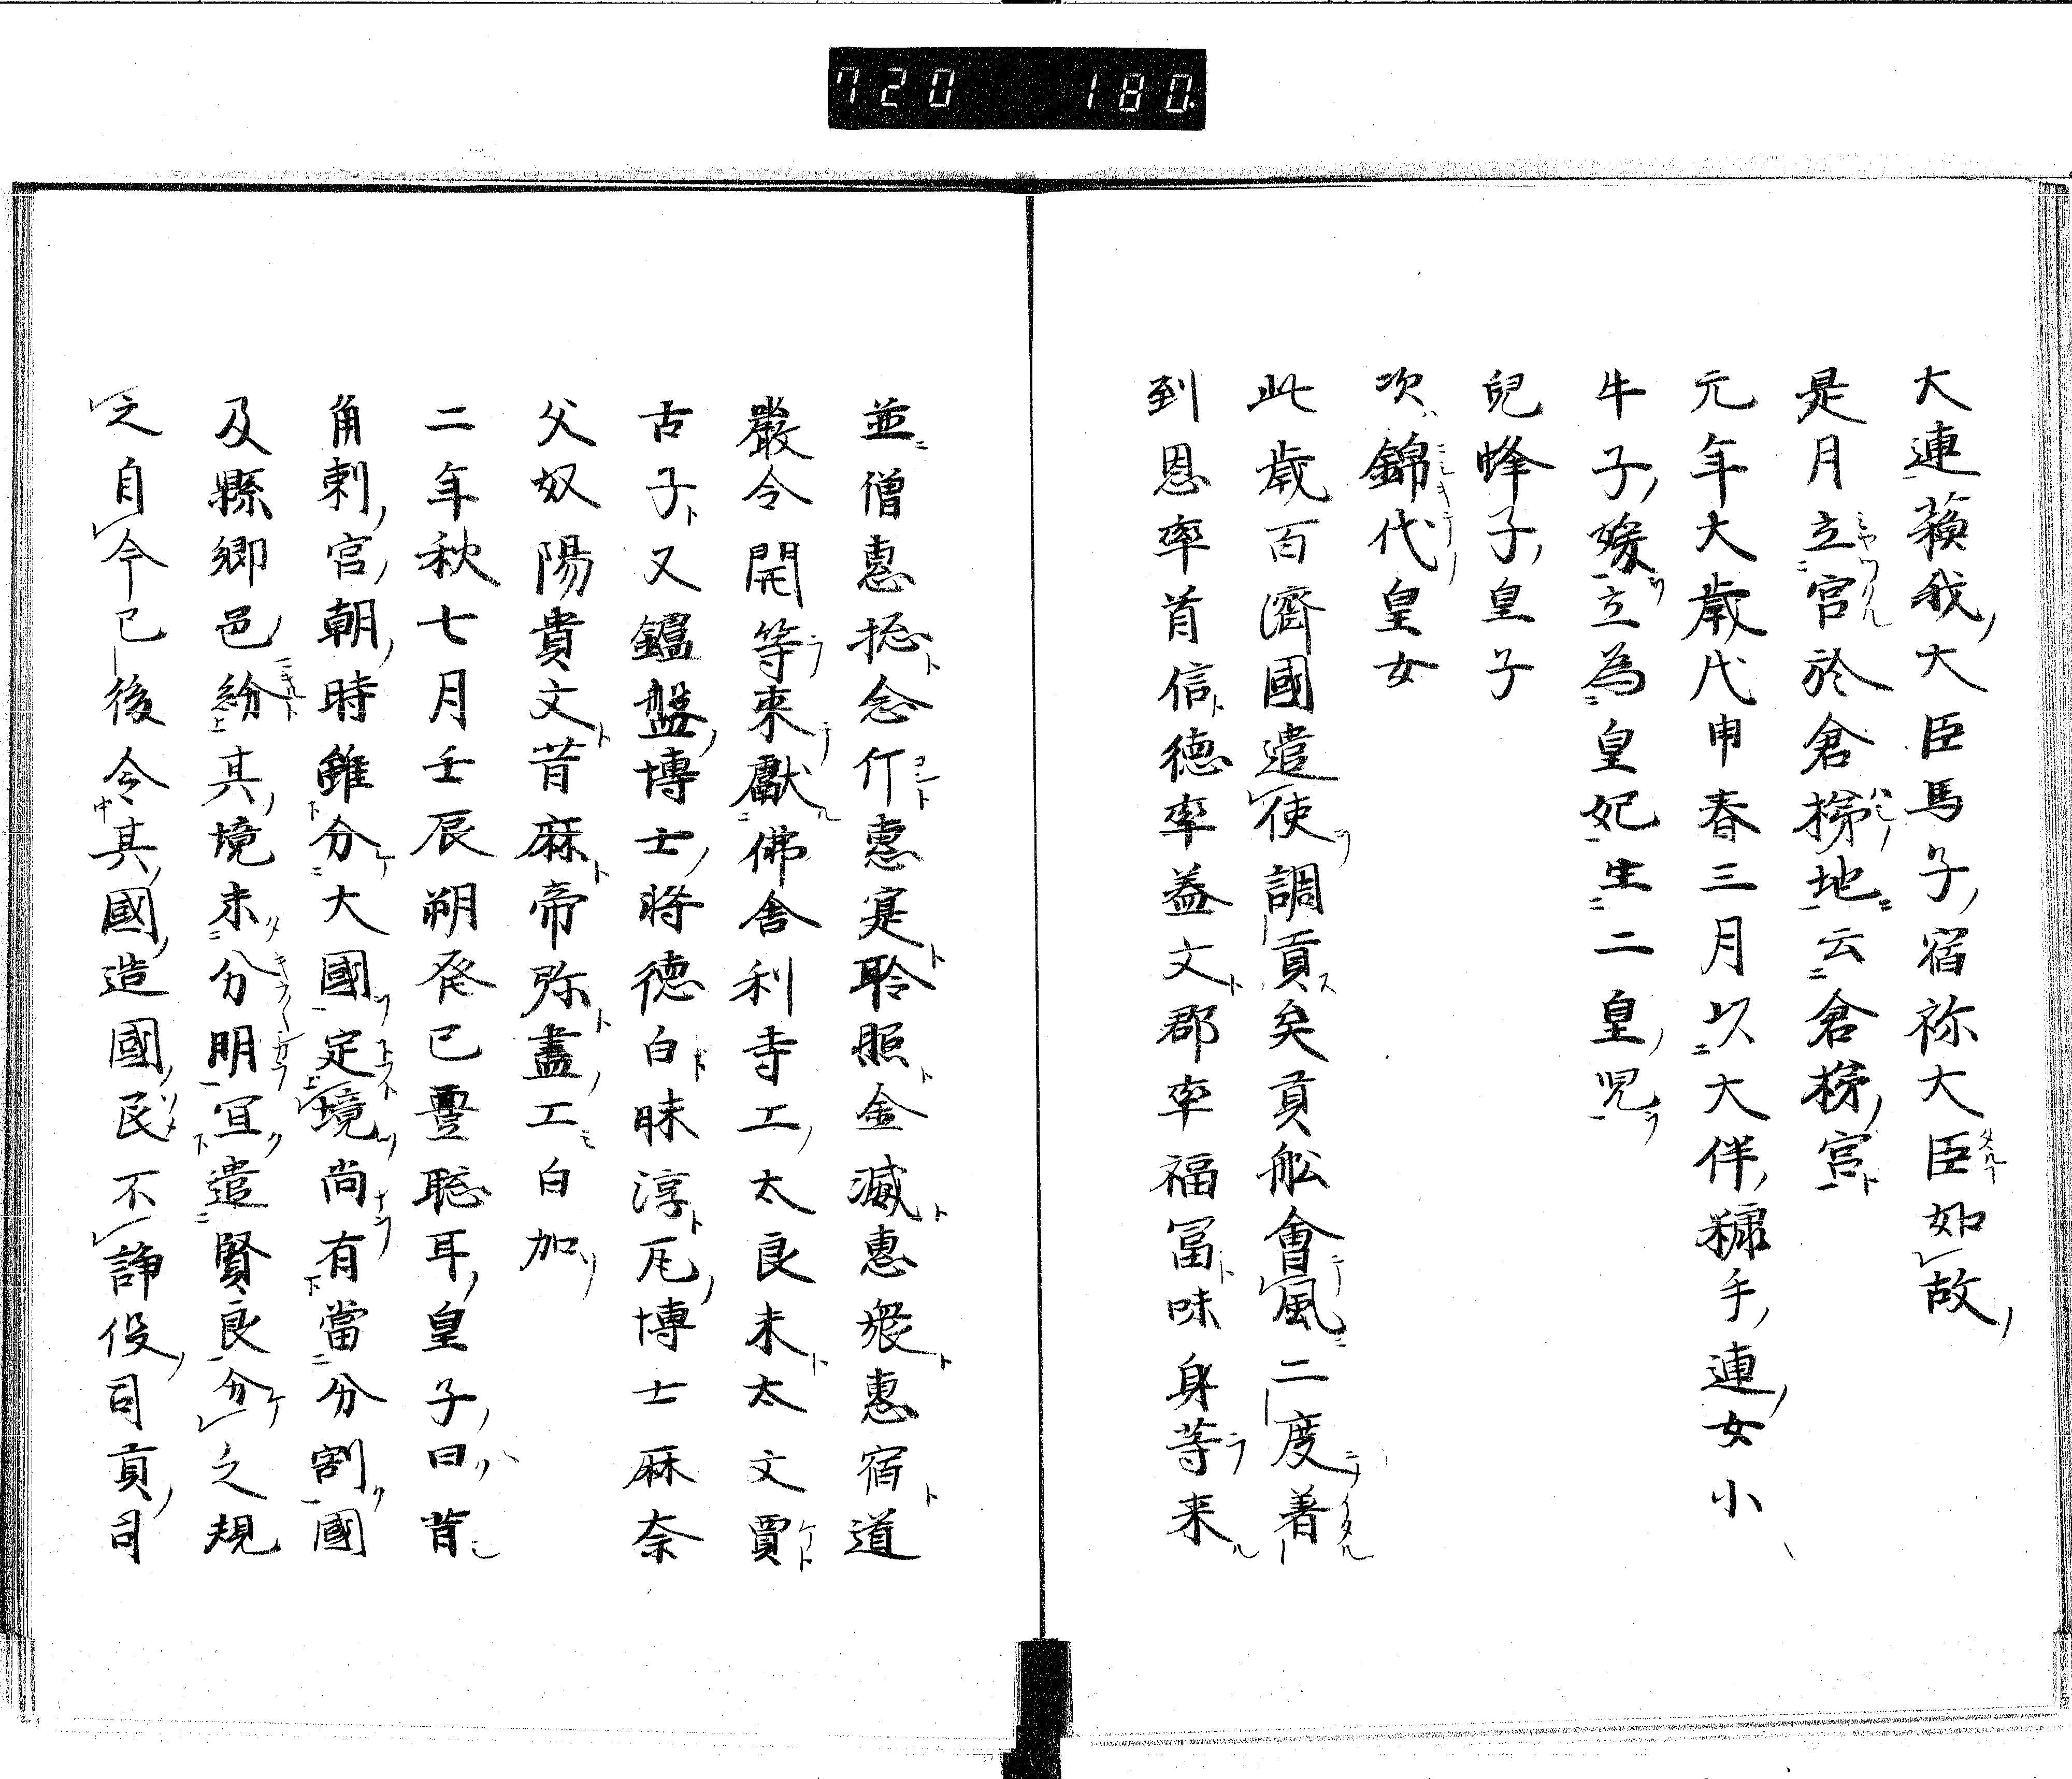 720 180.
大連蘓我大臣馬子宿祢大臣如故
是月立宮於倉梯地云倉梯宮
元年大歳戊申春三月以大伴糠手連女小
牛子媛立為皇妃生二皇児
兒蜂子皇子
次錦代皇女
此歳百濟國遣使調貢矣貢舩會風二度著
到恩率首信德率益文郡率福冨味身等来
並僧惠捴念斤惠寔聆照金滅惠衆惠宿道
嚴令開等來獻佛舍利寺工太良未太文賈
古子又鑪盤博士將德白昧淳瓦博士麻奈
父奴陽貴文昔麻帝弥盡工白加
二年秋七月壬辰朔癸巳豊聡耳皇子曰昔
角刺宮朝時雖分大國定境尚有當分割國
及縣郷邑紛其境未分明冝遣賢良分之規
之自今已後令其國造國民不諍役司貢司